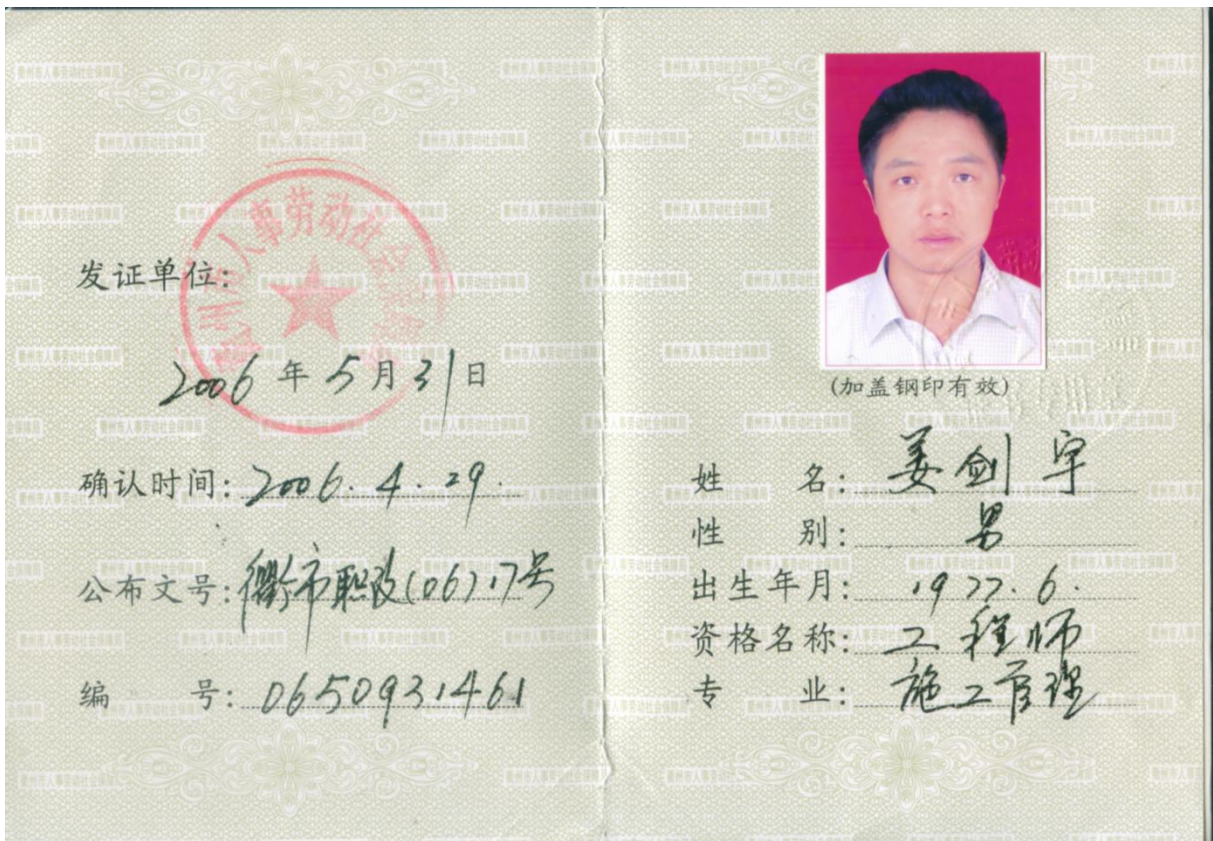 衢州市人事劳动社会保障局
发证单位:
2006年5月31日
确认时间:2006.4.29.
公布文号:衢市职改(06)17号
编 号:0650931461
(加盖钢印有效)
姓 名:姜剑宇
性 别:男
出生年月:1977.6.
资格名称:工程师
专 业:施工管理